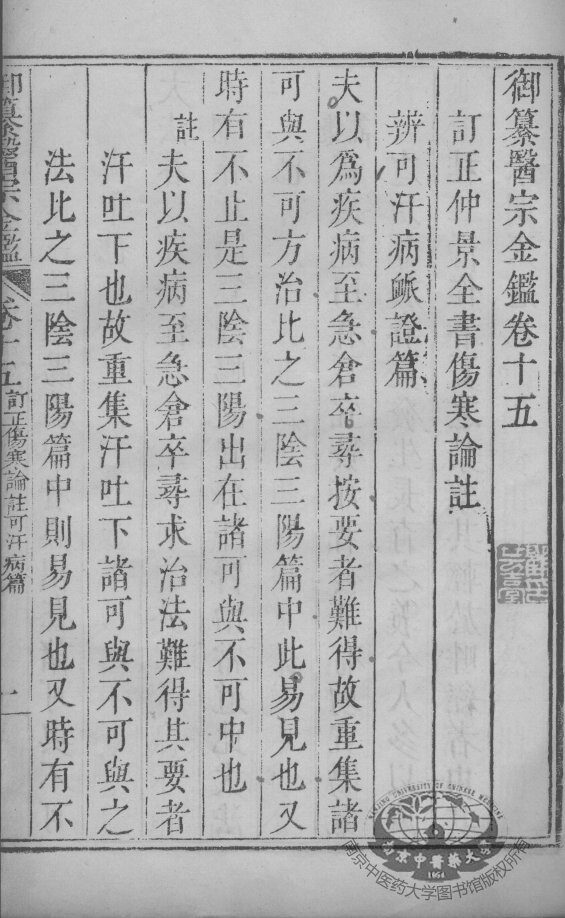 御纂醫宗金鑑卷十五
訂正仲景全書傷寒論註
辨可汗病脈證篇
夫以爲疾病至急倉卒尋按要者難得故重集諸
可與不可方治比之三陰三陽篇中此易見也又
時有不止是三陰三陽出在諸可與不可中也
註夫以疾病至急倉卒尋求治法難得其要者
汗吐下也故重集汗吐下諸可與不可與之
法比之三陰三陽篇中則易見也又時有不
御纂醫宗金鑑 卷十五 訂正傷寒論註可汗病篇 一
NANJING UNIVERSITY OF CHINESE MEDICINE
南京中醫藥大學
1954
南京中医药大学图书馆版权所有